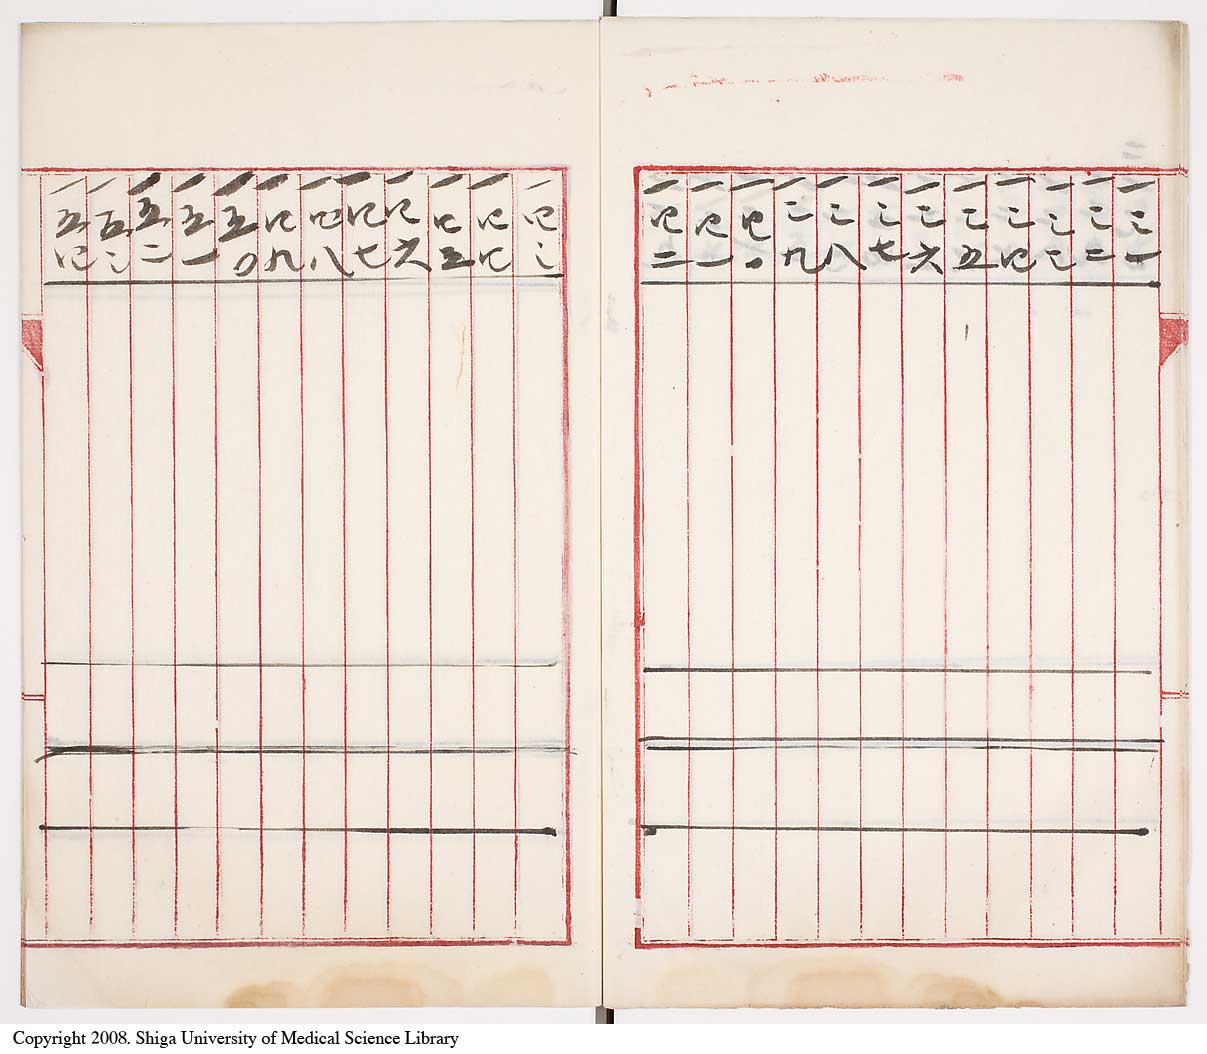 一三一
一三二
一三三
一三四
一三五
一三六
一三七
一三八
一三九
一四〇
一四一
一四二
一四三
一四四
一四五
一四六
一四七
一四八
一四九
一五〇
一五一
一五二
一五三
一五四
Copyright 2008. Shiga University of Medical Science Library